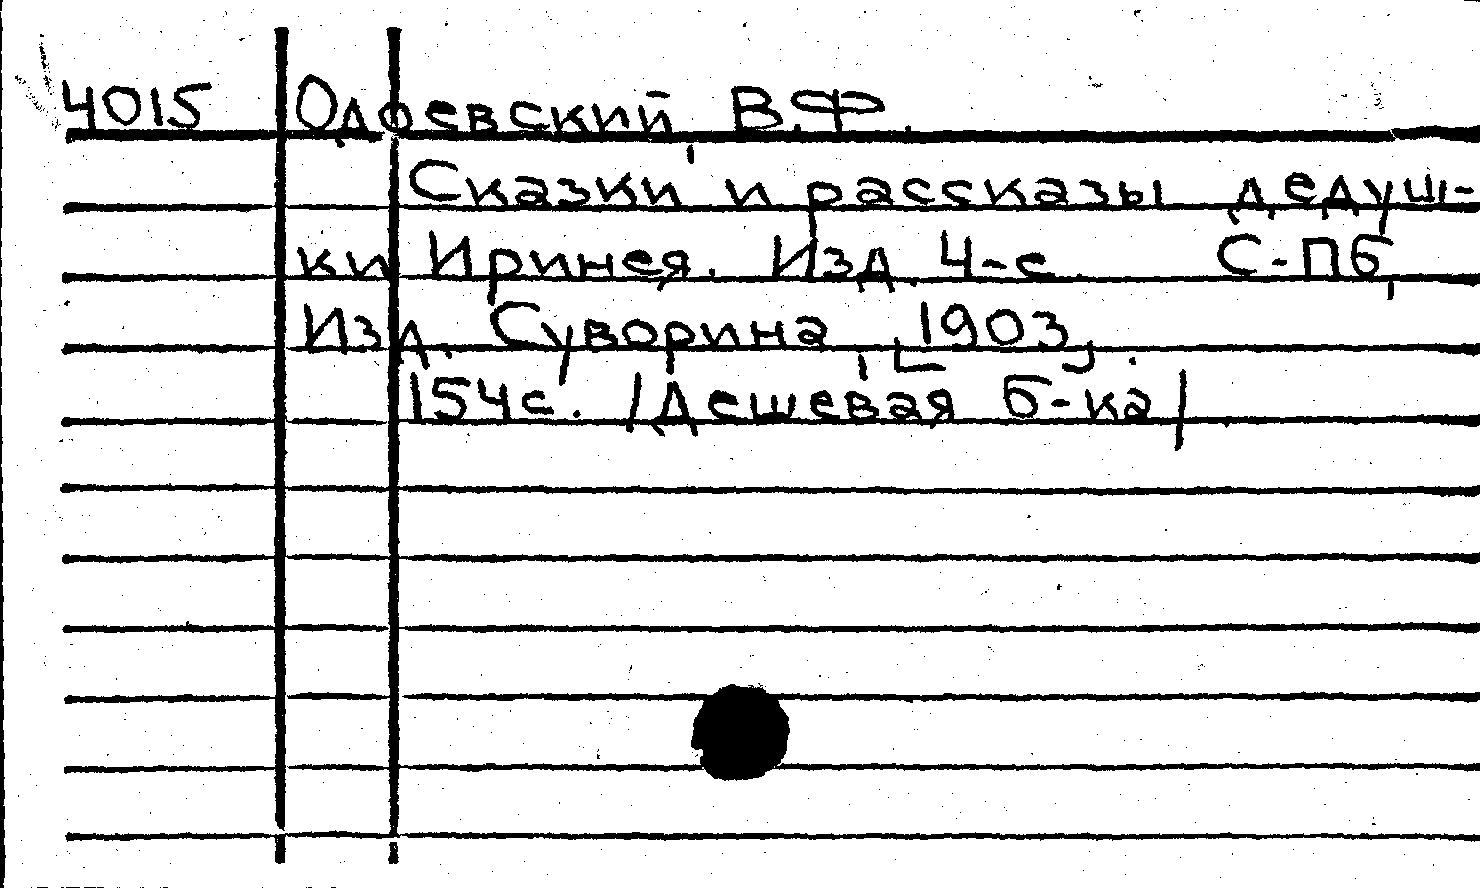 4015 Одоевский, В.Ф.
Сказки и рассказы дедуш-
ки Иринея. Изд. 4-е. С-Пб,
Изд. Суворина, [1903].
154с. /Дешевая б-ка/